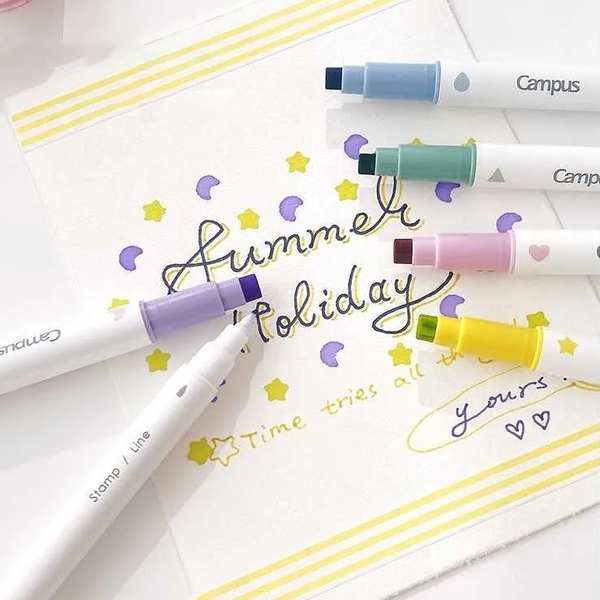 Campus
Camp
Summer
Holiday
Campus
Time tries all th
yours
Stamp / Line